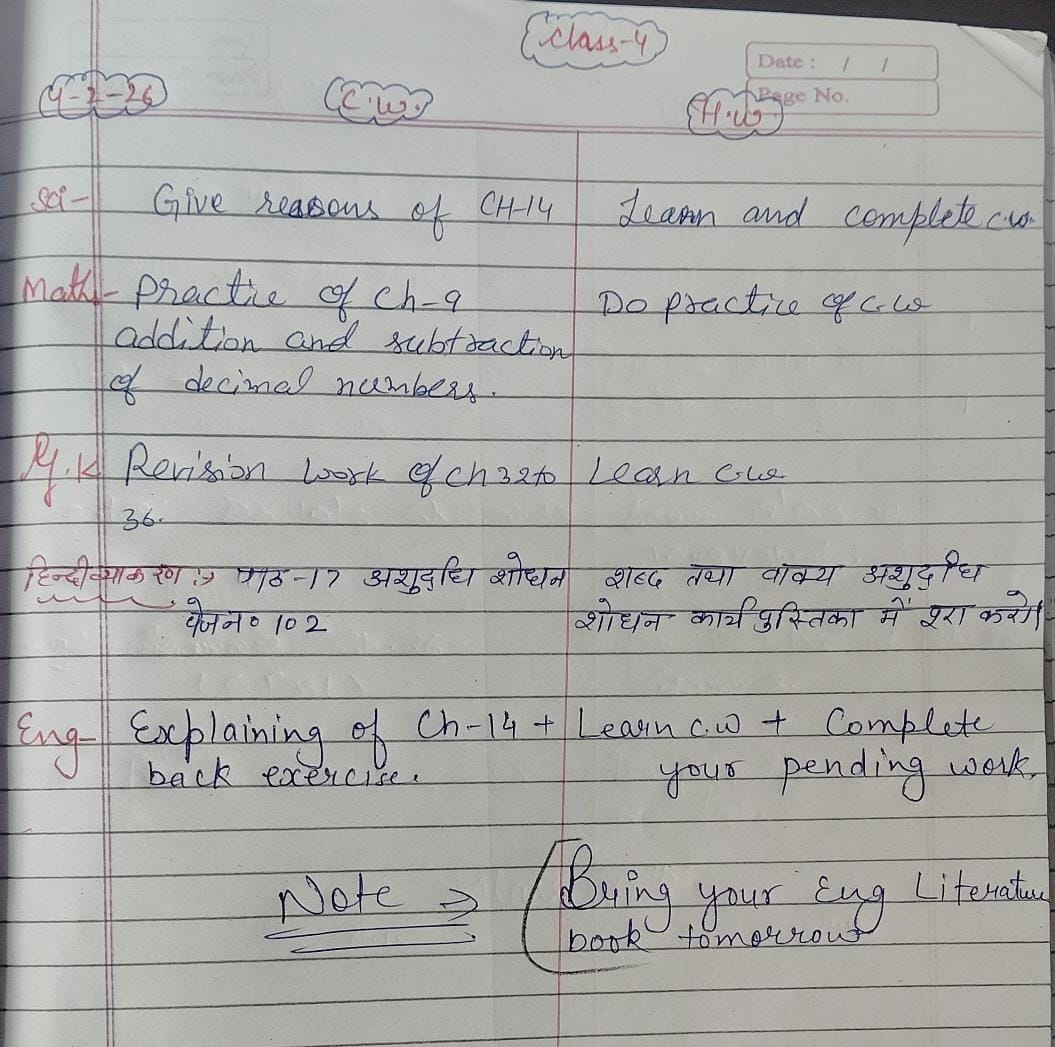 Class-4
Date : / /
Page No.
4-2-26 C.W. H.W.
Sci- Give reasons of CH-14 Learn and complete c.w.
Math- Practice of Ch-9 Do practice of c.w
addition and subtraction
of decimal numbers.
G.K Revision work of ch 32 to Learn c.w
36.
हिन्दी व्याकरण :-> पाठ-17 अशुद्धि शोधन शब्द तथा वाक्य अशुद्धि
पेज न० 102 शोधन कार्य पुस्तिका में पूरा करो।
Eng- Explaining of Ch-14 + Learn c.w + Complete
back exercise. your pending work.
Note => Bring your Eng Literature
book tomorrow